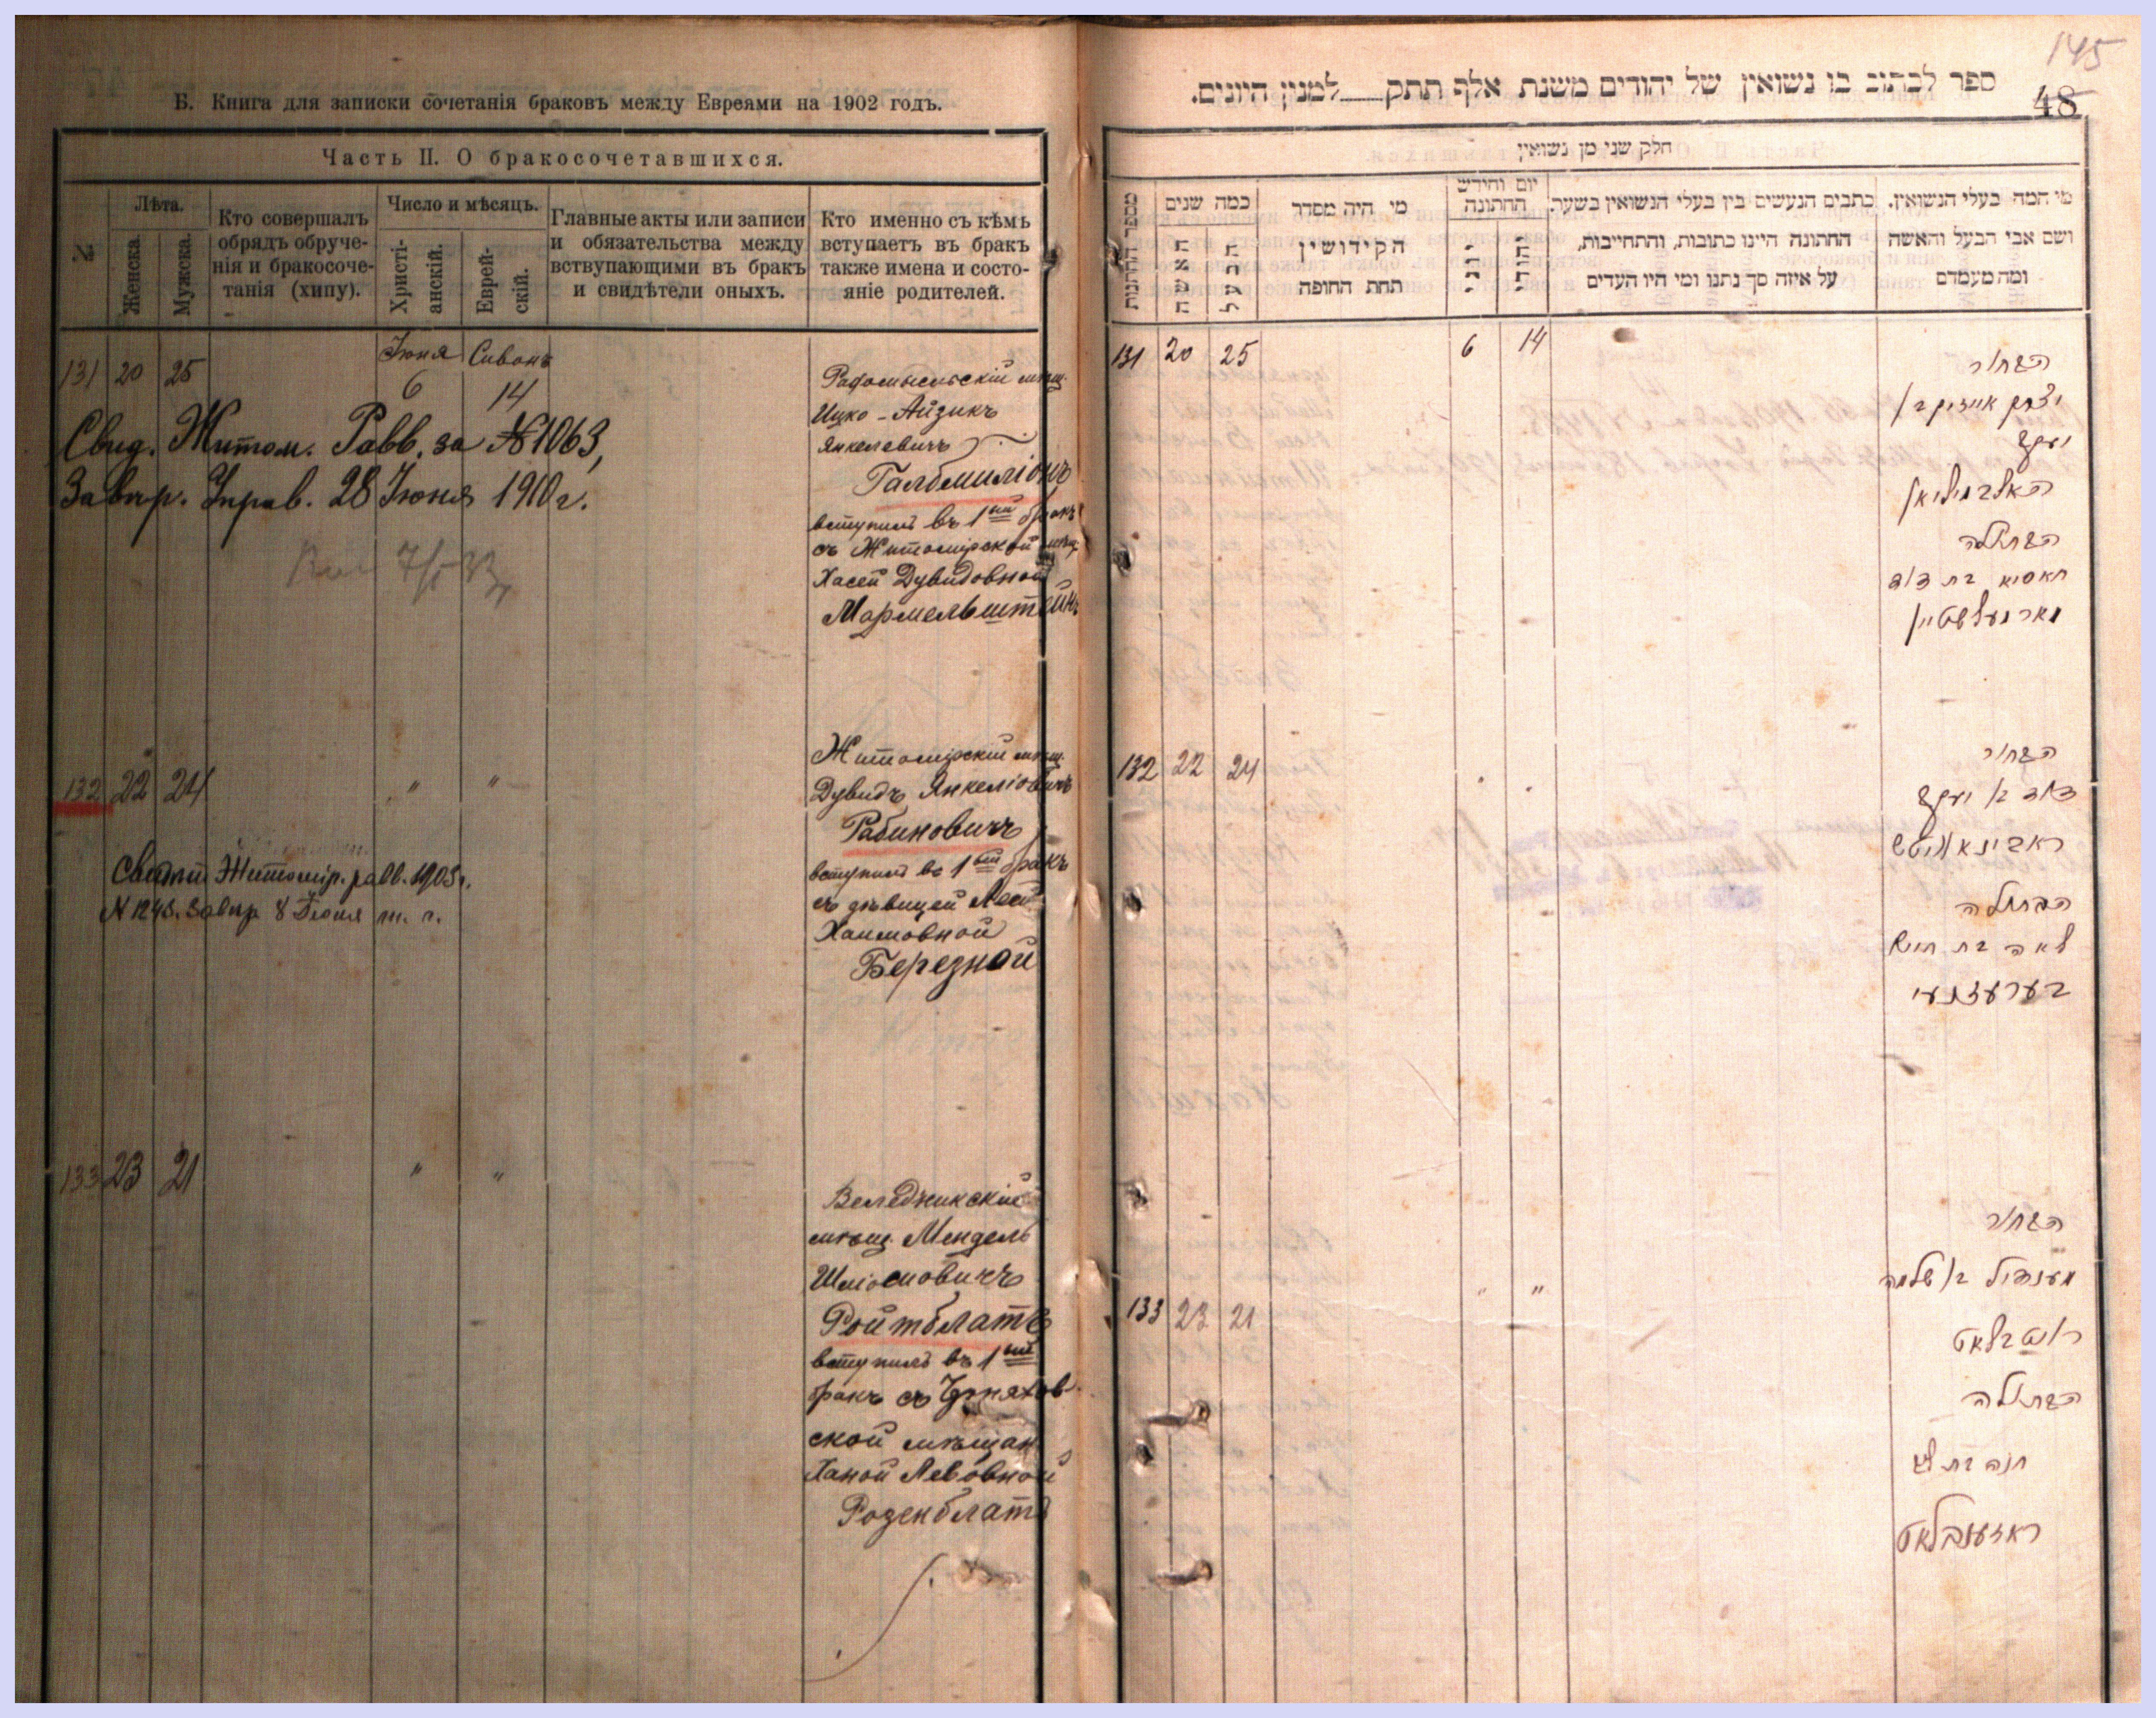 Б. Книга для записки сочетанія браковъ между Евреями на 1902 годъ.
Часть II. О бракосочетавшихся.
№
Лѣта.
Женска.
Мужска.
Кто совершалъ
обрядъ обруче-
нія и бракосоче-
танія (хипу).
Число и мѣсяцъ.
Христі-
анскій.
Еврей-
скій.
Главные акты или записи
и обязательства между
вствупающими въ бракъ
и свидѣтели оныхъ.
Кто именно съ кѣмъ
вступаетъ въ бракъ
также имена и состо-
яніе родителей.
131 20 25 Іюня Сивонъ
6 14
Свид. Житом. Равв. за №1063,
Завѣр. Управ. 28 Іюня 1910 г.
Радомысльскій мѣщ.
Ицко-Айзикъ
Янкелевичъ
Галбмиліонъ
вступилъ въ 1ый бракъ
съ Житомірской мѣщ
Хасей Дувидовной
Мармельштейнъ
132 22 24 " "
Свидѣт Житомір. равв. 1903 г.
№ 1243. Завѣр 8 Іюня т. г.
Житомірскій мѣщ.
Дувидъ Янкеліовичъ
Рабиновичъ
вступилъ въ 1ый бракъ
съ дѣвицей Леей
Хаимовной
Березной
133 23 21 " "
Веледникскій
мѣщ. Мендель
Шліомовичъ
Ройтблатъ
вступилъ въ 1ый
бракъ съ Черняхов-
ской мѣщан.
Ханой Левовной
Розенблатъ
145
48
ספר לכתוב בו נשואין של יהודים משנת אלף תתק למנין היונים.
חלק שני מן נשואין
מספר החתונות
כמה שנים
האשה
הבעל
מי היה מסדר
הקידושין
תחת החופה
יום וחידש
החתונה
יוני
יהודי
כתבים הנעשים בין בעלי הנשואין בשעת
החתונה היינו כתובות, והתחייבות,
על איזה סך נתנו ומי היו העדים
מי המה בעלי הנשואין.
ושם אבי הבעל והאשה
ומה מעמדם
131 20 25 6 14
הבחור
יצחק אייזיק בן
יעקב
האלבמיליאן
הבתולה
חאסיא בת דוד
מארמעלשטיין
132 22 24 " "
הבחור
דוד בן יעקב
ראבינאוויטש
הבתולה
לאה בת חיים
בערעזנעי
133 23 21 " "
הבחור
מענדיל בן שלמה
רויטבלאט
הבתולה
חנה בת ליב
ראזענבלאט